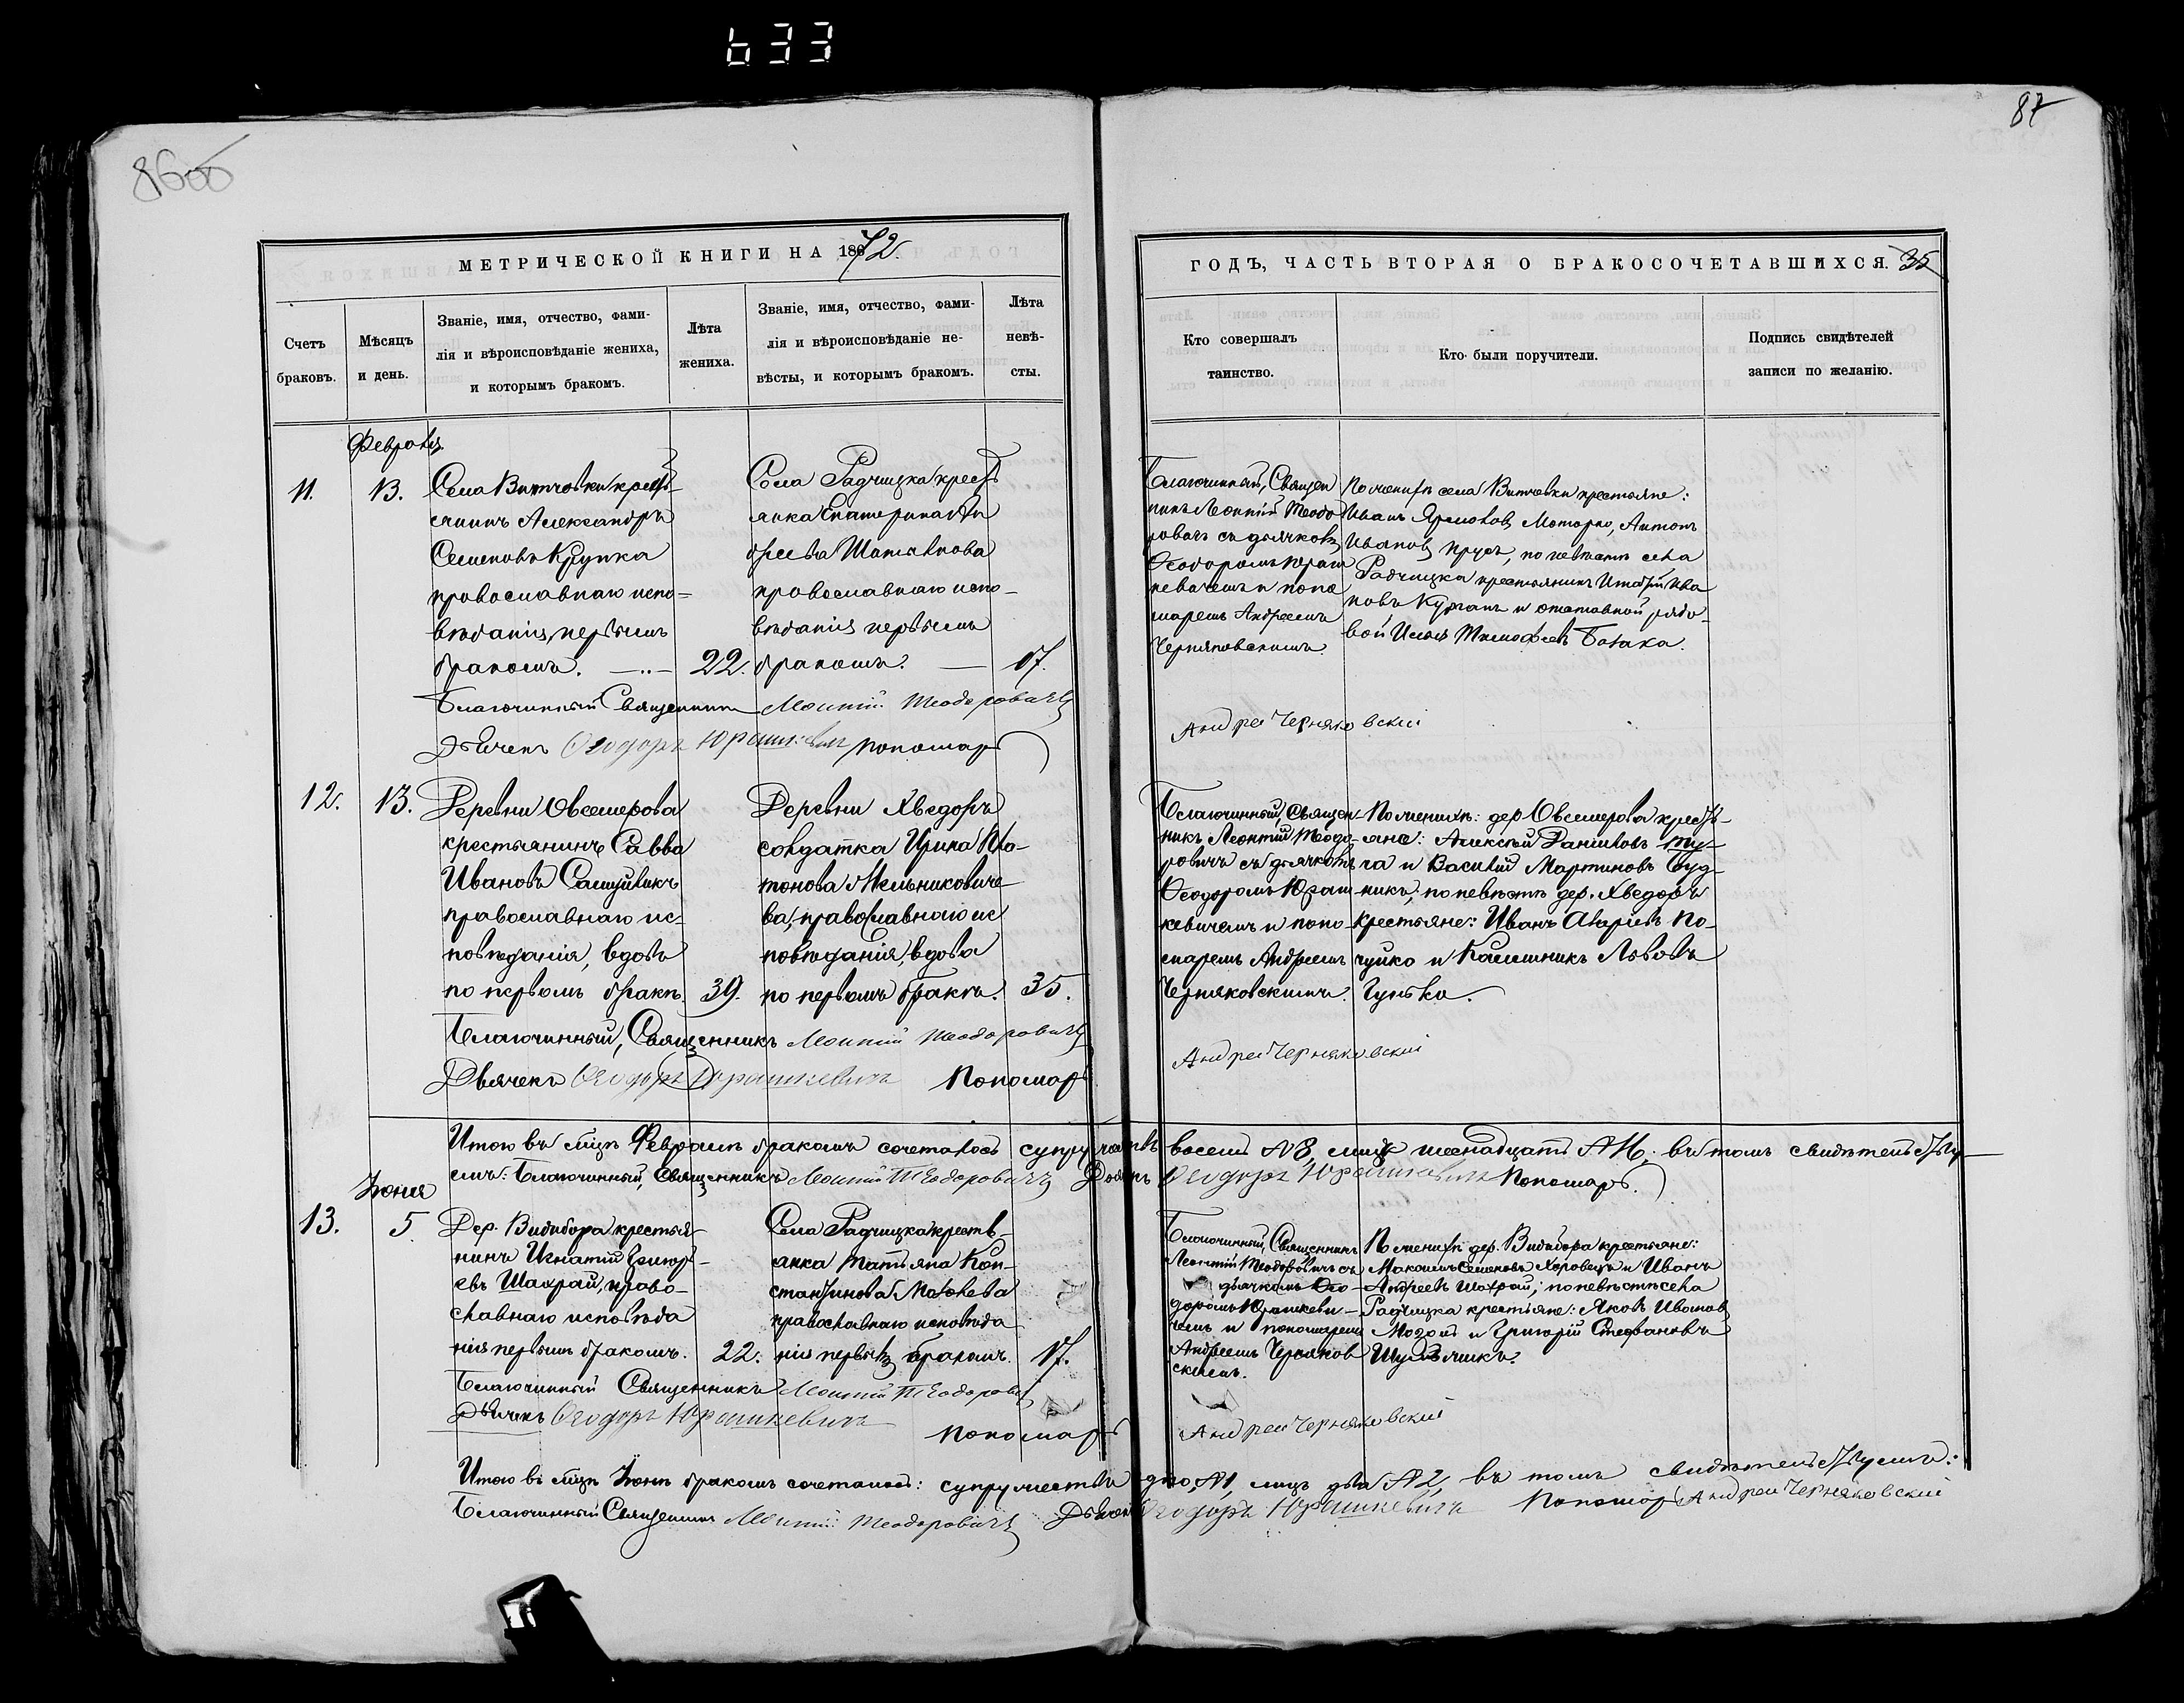 633
87
86об
МЕТРИЧЕСКОЙ КНИГИ НА 1872.
Счетъ браковъ.
Мѣсяцъ и день.
Званіе, имя, отчество, фами-
лія и вѣроисповѣданіе жениха,
и которымъ бракомъ.
Лѣта жениха.
Званіе, имя, отчество, фами-
лія и вѣроисповѣданіе не-
вѣсты, и которымъ бракомъ.
Лѣта невѣ-
сты.
ГОДЪ, ЧАСТЬ ВТОРАЯ О БРАКОСОЧЕТАВШИХСЯ. 35
Кто совершалъ
таинство.
Кто были поручители.
Подпись свидѣтелей
записи по желанію.
Февраля
11.
13.
Села Витчовки кресть-
янинъ Александръ
Семеновъ Крупка
православнаго испо-
вѣданія, первымъ
бракомъ.
22.
Села Радчицка кресть
янка Екатерина
православнаго испо-
вѣданія первымъ
бракомъ.
17.
Благочинный, Священ
никъ Леонтій Теодо
ровичъ съ дьячкомъ
Ѳеодоромъ Юраш
кевичемъ и поно
маремъ Андреемъ
Черняковскимъ.
По женихѣ села Витчовки крестьяне:
Иванъ Антонъ
Ивановъ по невѣстѣ села
Радчицка крестьянинъ Ива
новъ Курганъ и отставной рядо-
вой Тимофеевъ
Благочинный Священникъ Леонтій Теодоровичъ
Дьячекъ Ѳеодоръ Юрашкевичъ Пономарь
Андрей Черняковскій
12.
13.
Деревни Овсемерова
крестьянинъ Савва
Ивановъ
православнаго ис-
повѣданія, вдовъ
по первомъ бракѣ.
39.
Деревни Хведоръ
солдатка Ирина Пла-
тонова Мельниковиче-
ва, православнаго ис
повѣданія, вдова
по первомъ бракѣ.
35.
Благочинный, Священ-
никъ Леонтій Теодо-
ровичъ съ дьячкомъ
Ѳеодоромъ Юраш
кевичемъ и поно-
маремъ Андреемъ
Черняковскимъ.
По женихѣ: дер. Овсемерова кресть-
яне: Алексѣй Даниловъ
и Василій Мартиновъ Буд-
никъ; по невѣстѣ дер. Хведоръ
крестьяне: Иванъ По-
чуйко и Калинникъ Львовъ
Гунько.
Благочинный, Священникъ Леонтій Теодоровичъ
Дьячекъ Ѳеодоръ Юрашкевичъ Пономарь
Андрей Черняковскій
Итого въ мцѣ Февралѣ бракомъ сочеталось супружествъ восемь №8, лицъ шеснадцать №16. въ томъ свидѣтельству-
емъ: Благочинный, Священникъ Леонтій Теодоровичъ Ѳеодоръ Юрашкевичъ Пономарь.
Іюня
13.
5
Дер. Видибора крестья-
нинъ Игнатій Григорь-
евъ Шахрай, право-
славнаго исповѣда
нія первымъ бракомъ.
22.
Села Радчицка кресть-
янка Татьяна Кон-
стантинова
православнаго исповѣда
нія первымъ бракомъ.
17.
Благочинный, Священникъ
Леонтій Теодоровичъ съ
дьячкомъ Ѳео-
доромъ Юрашкеви-
чемъ и пономаремъ
Андреемъ Черняков
скимъ.
По женихѣ дер. Видибора крестьяне:
Максимъ Семеновъ Хоровецъ и Иванъ
Андреевъ Шахрай; по невѣстѣ села
Радчицка крестьяне: Яковъ Ивановъ
и Григорій Стефановъ
Благочинный Священникъ Леонтій Теодорович
Дьячекъ Ѳеодоръ Юрашкевичъ
Пономарь
Андрей Черняковскій
Итого въ мцѣ Іюнѣ бракомъ сочеталось: супружество одно №1, лицъ два №2, въ томъ свидѣтельствуемъ:
Благочинный Священникъ Леонтій Теодоровичъ Дьячекъ Ѳеодоръ Юрашкевичъ Пономарь Андрей Черняковскій